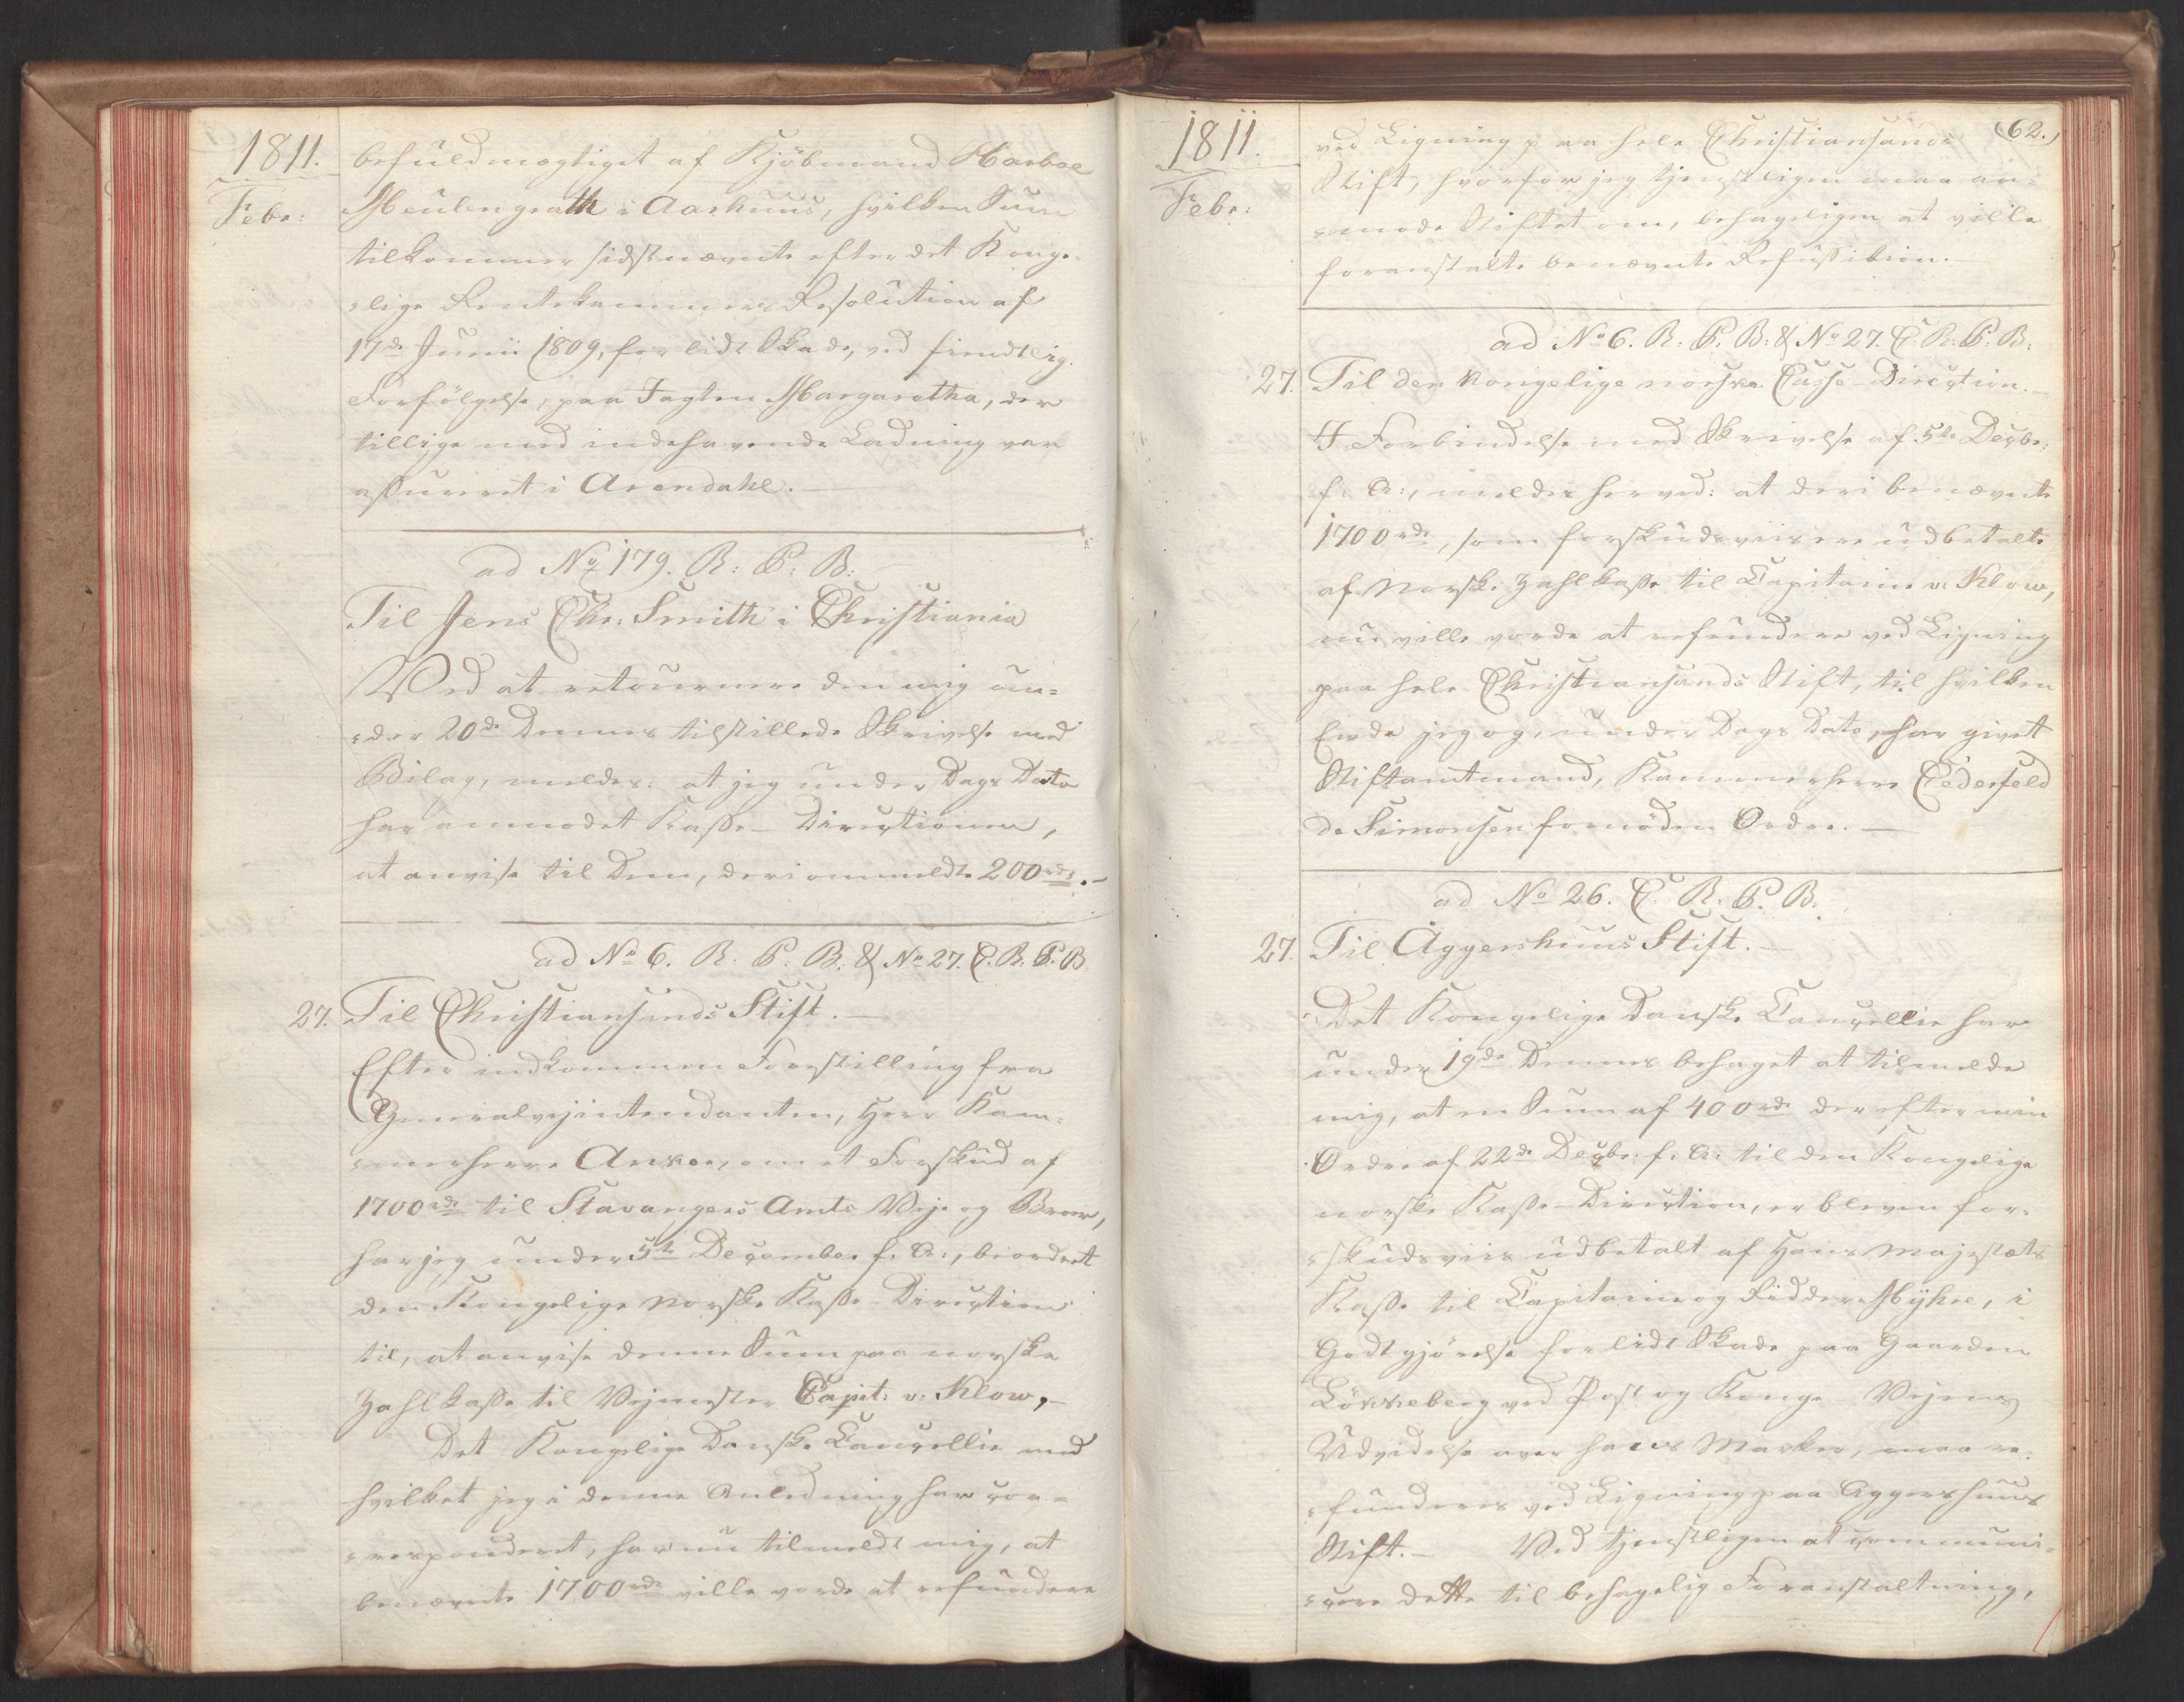 1811.
Febr:
befuldmægtiget af Kjöbmand Harboe
Meulengrath i Aarhuus, hvilken Sum
tilkommer sidstnævnte efter det Konge-
=lige Rentekammers Resolution af
17de Junii 1809, for lidt Skade, ved fiendtlig
Forfölgelse, paa Jagten Margaretha, der
tillige med indehavende Ladning var
assureret i Arendahl.
ad No 179. R: P: B:
Til Jens Chr: Smith i Christiania
Ved at retournere den mig un=
=der 20de Dennes tilstillede Skrivelse med
Bilag, meldes: at jeg under Dags Dato
har anmodet Kasse-Directionen,
at anvise til Dem, den ommeldte 200rd.-
ad No 6. R. P. B. & No 27. C. R. P. B
27. Til Christiansands Stift.
Efter indkommen Forestilling fra
Generalvejintendanten, Herr Kam-
=merherre Anker, om et Forskud af
1700rd til Stavangers Amts Veje og Broer,
har jeg under 5te December f. A:, beordret
den Kongelige Norske Kasse-Direction
til, at anvise denne Sum paa norske
Zahlkasse til Vejmester Capit: v: Klow,-
Det Kongelige Danske Cancellie med
hvilket jeg i denne Anledning har cor=
=responderet, har nu tilmeldt mig, at
benævnte 1700rd ville vorde at refundere
1811.
Febr:
(62.)
ved Ligning paa hele Christiansands
Stift, hvorfor jeg tjenstligen maa an-
=mode Stiftet om, behageligen at ville
foranstalte benævnte Refusition.-
ad No 6. R. P. B: & No 27. C. R. P. B:
27. Til den kongelige norske Casse-Direction.
I Forbindelse med Skrivelse af 5te Decbr:
f: A:, meldes herved: at den benævnte
1700rd, som forskudsviis ere udbetalte
af Norske Zahlkasse til Capitain v. Klow,
nu ville vorde at refundere ved Ligning
paa hele Christiansands Stift, til hvilken
Ende jeg og, under Dags Dato, har givet
Stiftamtmand, Kammerherre Cederfeld
de Simonsen fornöden Ordre.-
ad No 26. C. R. P. B.
27. Til Aggershuus Stift.-
Det Kongelige Danske Cancellie har
under 19de Dennes behaget at tilmelde
mig, at en Sum af 400rd der efter min
Ordre af 22de Decbr: f: A: til den Kongelige
norske Kasse-Direction, er bleven for-
=skudsviis udbetalt af Hans Majestæts
Kasse til Capitain og Ridder Myhre, i
Godtgjörelse for lidt Skade paa Gaarden
Lökkeberg ved Post og Konge Vejens
Udvidelse over hans Marker, maa re-
=funderes ved Ligning paa Aggershuus
Stift.- Ved tjenstligen at communi-
=cere dette til behagelig Foranstaltning,